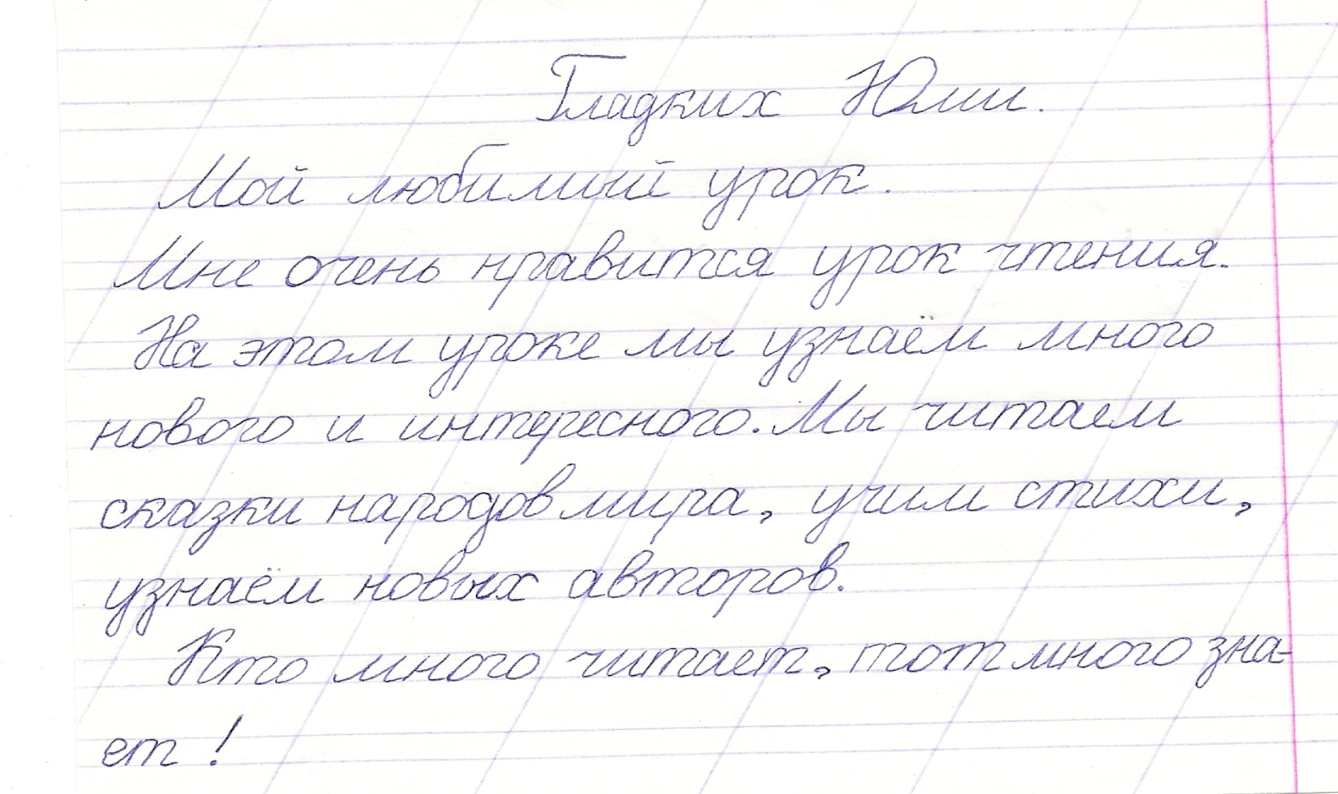 Гладких Юлии.
Мой любимый урок.
Мне очень нравится урок чтения.
На этом уроке мы узнаём много
нового и интересного. Мы читаем
сказки народов мира, учим стихи,
узнаём новых авторов.
Кто много читает, тот много зна-
ет!